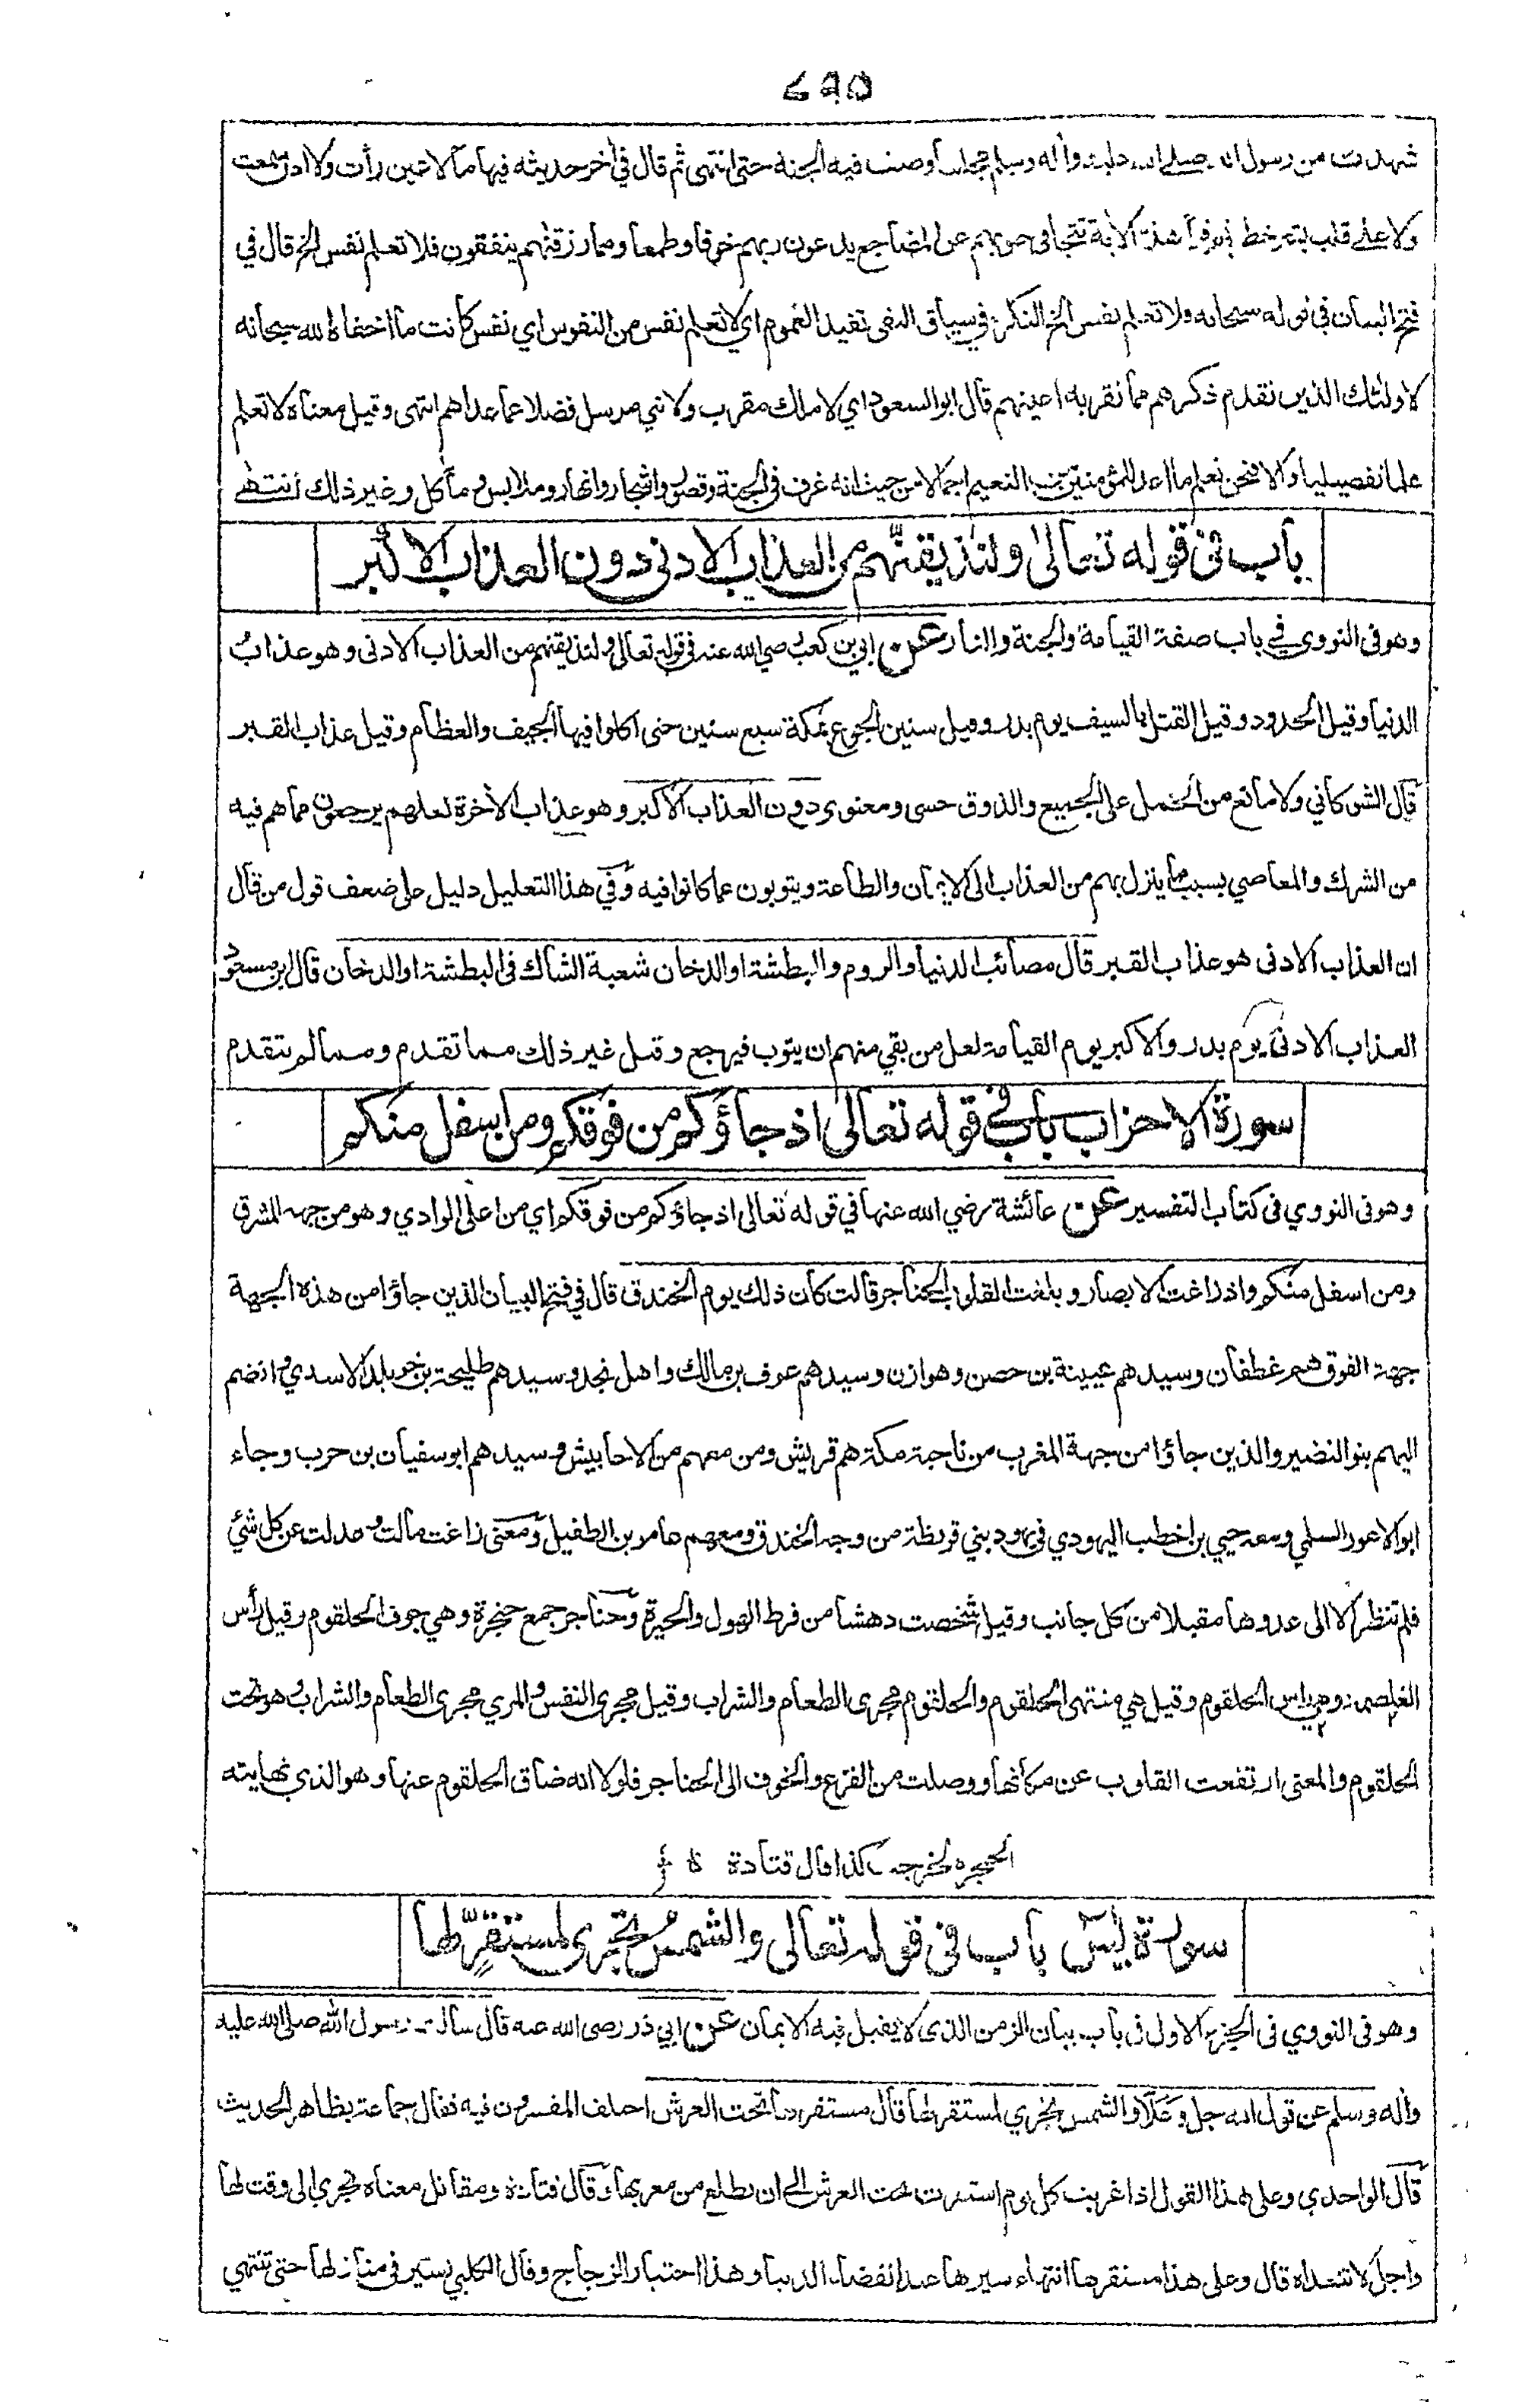 ٦٩٥
شهدت من رسول الله صلى الله عليه وأله وسلم مجلسا وصف فيه الجنة حتى انتهى ثم قال في أخر حديثه فيها مالا عين رأت ولا اذن سمعت
ولا على قلب بشر خطر ثم قرأ هذه الأية تتجافى جنوبهم عن المضاجع يدعون ربهم خوفا وطمعا ومما رزقنهم ينفقون فلا تعلم نفس الخ قال في
فتح البيان في قوله سبحانه ولا تعلم نفس الخ النكرة في سياق النفي تفيد العموم اي لا تعلم نفس من النفوس اي نفس كانت ما اخفاه الله سبحانه
لاولئك الذين تقدم ذكرهم مما تقر به اعينهم قال ابو السعود اي لا ملك مقرب ولا نبي مرسل فضلا عما عداهم انتهى وقيل معناه لا تعلم
علما تفصيليا والا فنحن نعلم ما اعد للمؤمنين من النعيم اجمالا من حيث انه غرف في الجنة وقصور واشجار وانهار وملابس ومأكل وغير ذلك انتهى
باب في قوله تعالى ولنذيقنّهم من العذاب الادنى دون العذاب الاكبر
وهو في النووي في باب صفة القيامة والجنة والنار عن ابي بن كعب رضي الله عنه في قوله تعالى ولنذيقنهم من العذاب الادنى وهو عذاب
الدنيا وقيل الحدود وقيل القتل بالسيف يوم بدر وقيل سنين الجوع بمكة سبع سنين حتى اكلوا فيها الجيف والعظام وقيل عذاب القبر
قال الشوكاني ولا مانع من الحمل على الجميع والذوق حسى ومعنوي دون العذاب الاكبر وهو عذاب الأخرة لعلهم يرجعون مما هم فيه
من الشرك والمعاصي بسبب ما ينزل بهم من العذاب الى الايمان والطاعة ويتوبون عما كانوا فيه وفي هذا التعليل دليل على ضعف قول من قال
ان العذاب الادنى هو عذاب القبر قال مصائب الدنيا والروم والبطشة او الدخان شعبة الشاك في البطشة او الدخان قال ابن مسعود
العذاب الادنى يوم بدر والاكبر يوم القيامة لعل من بقي منهم ان يتوب فيرجع وقيل غير ذلك مما تقدم ومما لم يتقدم
سورة الاحزاب باب في قوله تعالى اذ جاؤكم من فوقكم ومن اسفل منكم
وهو في النووي في كتاب التفسير عن عائشة رضي الله عنها في قوله تعالى اذ جاؤكم من فوقكم اي من اعلى الوادي وهو من جهة المشرق
ومن اسفل منكم واذ زاغت الابصار وبلغت القلوب الحناجر قالت كان ذلك يوم الخندق قال في فتح البيان الذين جاؤا من هذه الجهة
جهة الفوق هم غطفان وسيدهم عيينة بن حصن وهوازن وسيدهم عوف بن مالك واهل نجد وسيدهم طليحة بن خويلد الاسدي وانضم
اليهم بنو النضير والذين جاؤا من جهة المغرب من ناحية مكة هم قريش ومن معهم من الاحابيش وسيدهم ابو سفيان بن حرب وجاء
ابو الاعور السلمي ومعه حيي بن اخطب اليهودي في يهود بني قريظة من وجه الخندق ومعهم عامر بن الطفيل ومعنى زاغت مالت وعدلت عن كل شئ
فلم تنظر الا الى عدوها مقبلا من كل جانب وقيل شخصت دهشا من فرط الهول والحيرة وحناجر جمع حنجرة وهي جوف الحلقوم وقيل رأس
الغلصمة وهي رأس الحلقوم وقيل هي منتهى الحلقوم والحلقوم مجرى الطعام والشراب وقيل مجرى النفس والمري مجرى الطعام والشراب وهو تحت
الحلقوم والمعنى ارتفعت القلوب عن مكانها ووصلت من الفزع والخوف الى الحناجر فلولا انه ضاق الحلقوم عنها وهو الذي نهايته
الحنجرة لخرجت كذا قال قتادة
سورة يٰس باب في قوله تعالى والشمس تجرى لمستقرٍّ لها
وهو في النووي في الجزء الاول في باب بيان الزمن الذى لا يقبل فيه الايمان عن ابي ذر رضى الله عنه قال سألت رسول الله صلى الله عليه
وأله وسلم عن قول الله جل وعلا والشمس تجري لمستقر لها قال مستقرها تحت العرش اختلف المفسرون فيه فقال جماعة بظاهر الحديث
قال الواحدي وعلى هذا القول اذا غربت كل يوم استقرت تحت العرش الى ان تطلع من مغربها وقال قتادة ومقاتل معناه تجري الى وقت لها
واجل لا تتعداه قال وعلى هذا مستقرها انتهاء سيرها عند انقضاء الدنيا وهذا اختيار الزجاج وقال الكلبي تسير في منازلها حتى تنتهي